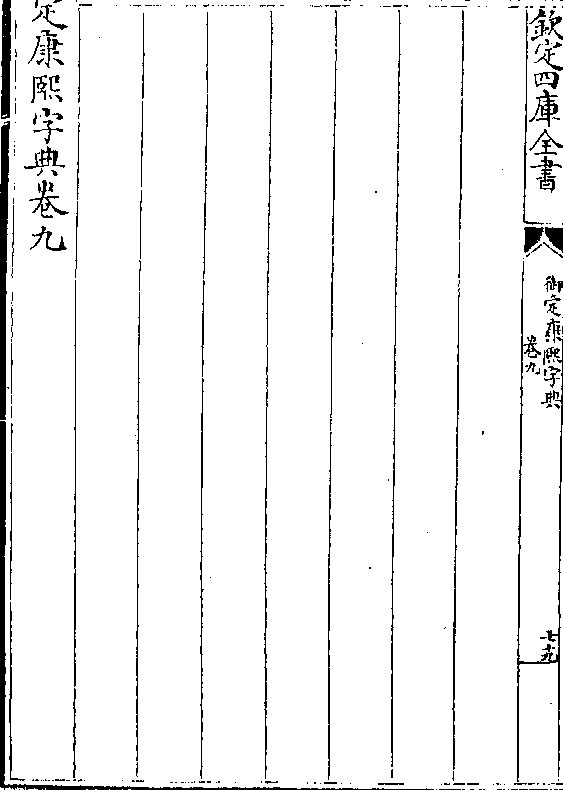 欽定四庫全書
御定康熙字典
卷九
七十九
定康熙字典卷九